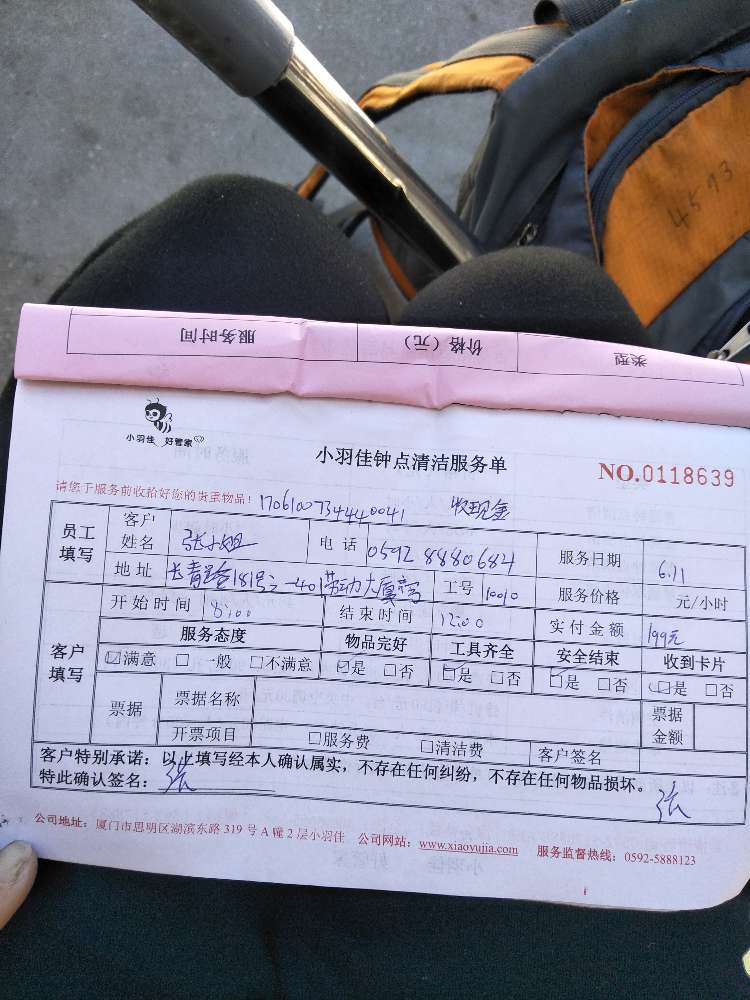 4593
服务时间 价格（元） 类型
小羽佳 好管家
小羽佳钟点清洁服务单 NO.0118639
请您于服务前收拾好您的贵重物品！ 收现金
员工填写 客户姓名 张小姐 电话 0592 8880684 服务日期 6.11
地址 长青路181号之一401劳动大厦旁 工号 10010 服务价格 元/小时
客户填写 开始时间 8:00 结束时间 12:00 实付金额 199元
服务态度 物品完好 工具齐全 安全结束 收到卡片
☑满意 □一般 □不满意 ☑是 □否 ☑是 □否 ☑是 □否 ☑是 □否
票据 票据名称 票据金额
开票项目 □服务费 □清洁费 客户签名
客户特别承诺：以上填写经本人确认属实，不存在任何纠纷，不存在任何物品损坏。
特此确认签名：张 张
公司地址：厦门市思明区湖滨东路 319 号 A 幢 2 层小羽佳 公司网站：www.xiaoyujia.com 服务监督热线：0592-5888123